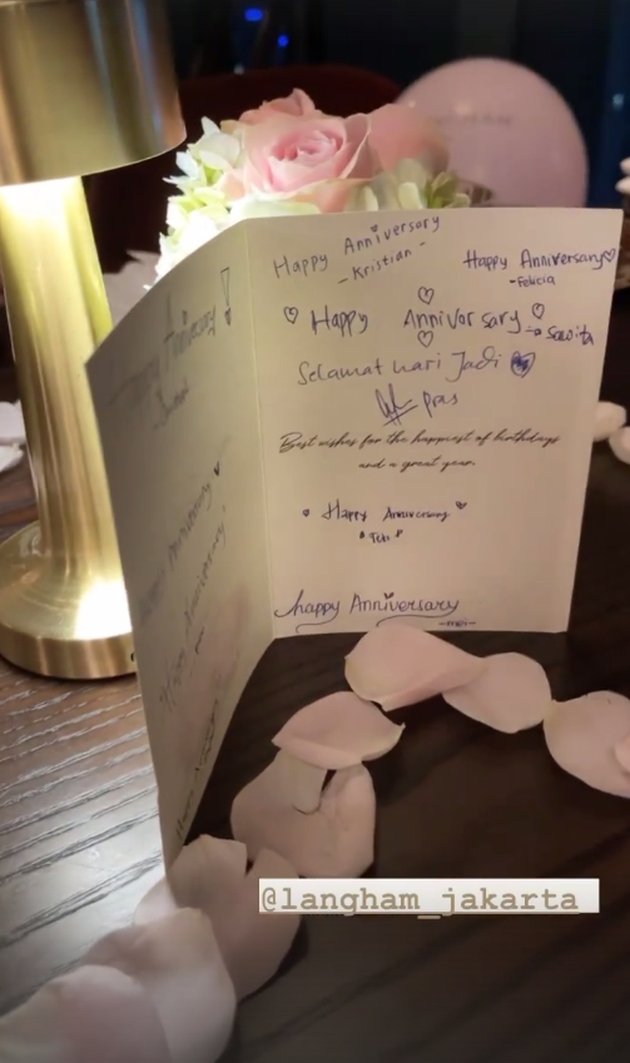 Happy Anniversary
-Kristian-
Happy Anniversary
-Felicia
Happy Anniversary
Sawita
Selamat Hari Jadi
pras
Best wishes for the happiest of birthdays
and a great year.
Happy Anniversary
happy Anniversary
-mei-
Anniversary!
Anniversary
Happy Anniversary
@langham_jakarta